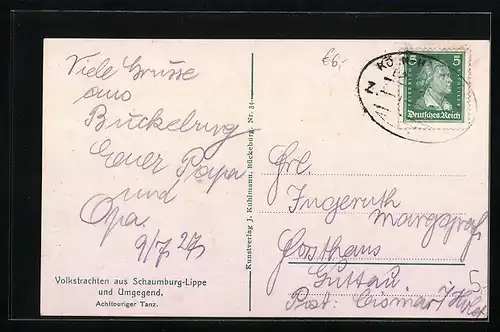 Viele Grüsse
aus
Bückeburg
Euer Papa
und
Opa.
9/7 27
Volkstrachten aus Schaumburg-Lippe
und Umgegend.
Achttouriger Tanz.
Kunstverlag J. Kuhlmann, Bückeburg. Nr. 34
€6,-
5 5
Deutsches Reich
Frl.
Ingeruth
Forsthaus
Guttau
Post: Cismar